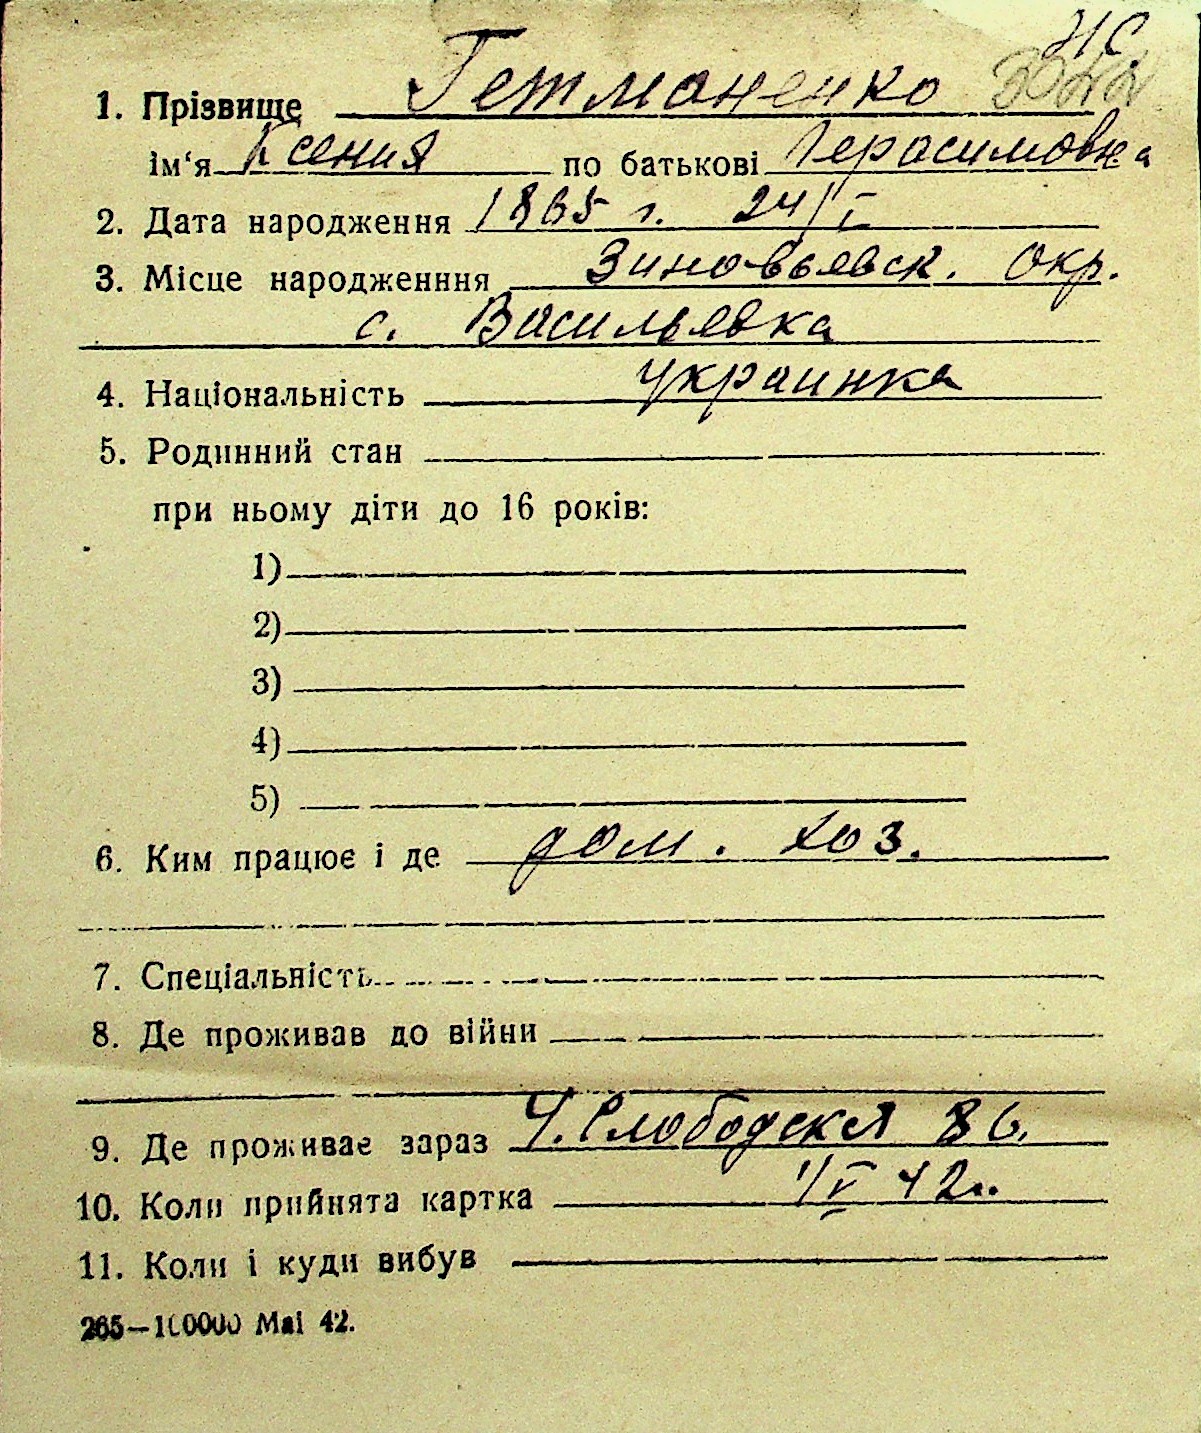 НС
1. Прізвище Гетманенко
ім'я Ксения по батькові Герасимовна
2. Дата народження 1865 г. 24/I
3. Місце народженння Зиновьевск. Окр.
с. Васильевка
4. Національність украинка
5. Родинний стан
при ньому діти до 16 років:
1)
2)
3)
4)
5)
6. Ким працює і де дом. хоз.
7. Спеціальність
8. Де проживав до війни
9. Де проживає зараз Ч. Слободская 86.
10. Коли прийнята картка 1/V 42г.
11. Коли і куди вибув
265—100000 Mai 42.